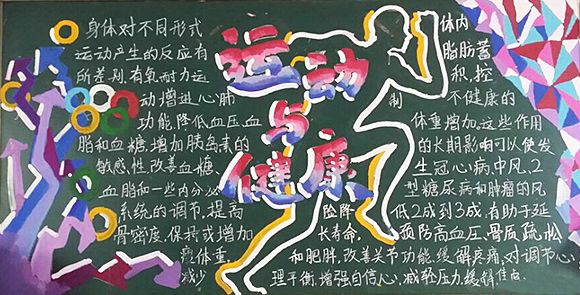 运动
与
健康
身体对不同形式
运动产生的反应有
所差别,有氧耐力运
动增进心肺
功能,降低血压,血
脂和血糖,增加胰岛素的
敏感性,改善血糖
血脂和一些内分泌
系统的调节,提高
骨密度,保持或增加
瘦体重,
减少
体内
脂肪蓄
积,控
制 不健康的
体重增加,这些作用
的长期影响可以使发
生冠心病,中风,2
型糖尿病和肿瘤的风
险降 低2成到3成,有助于延
长寿命, 预防高血压,骨质疏松
和肥胖,改善关节功能,缓解疼痛,对调节心
理平衡,增强自信心,减轻压力,缓解